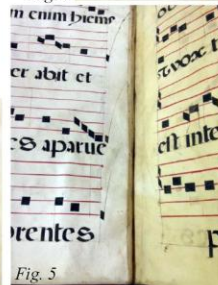 m enim
er abit et
es aparue
orentes
vox t
est inte
p
Fig. 5